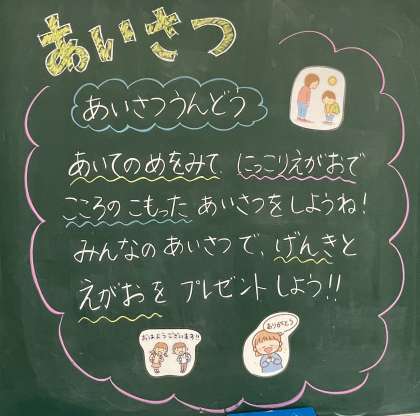 あいさつ
あいさつうんどう
あいてのめをみて、にっこりえがおで
こころのこもった あいさつをしようね!
みんなのあいさつで、げんきと
えがおを プレゼントしよう!!
おはようございます!!
ありがとう